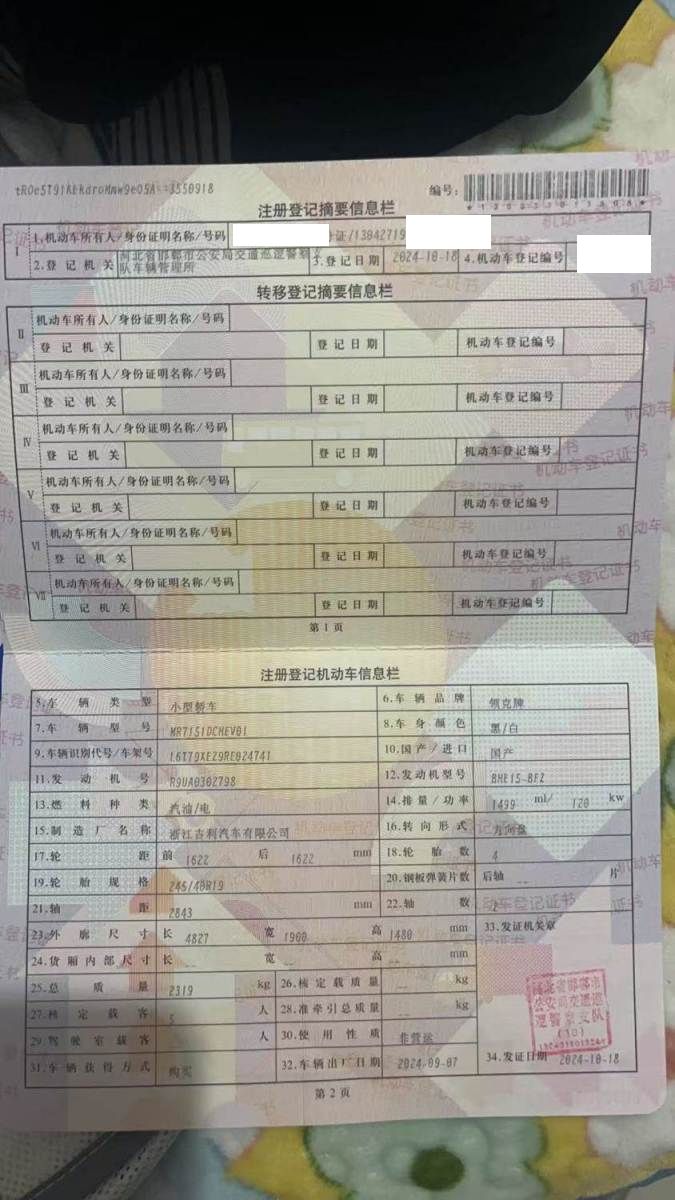 tR0e5T91KEkdroMmw9e05A==3550918
编号:
注册登记摘要信息栏
I 1.机动车所有人/身份证明名称/号码 证/13042719
2.登记机关 河北省邯郸市公安局交通巡逻警察支队车辆管理所 3.登记日期 2024-10-18 4.机动车登记编号
转移登记摘要信息栏
II 机动车所有人/身份证明名称/号码
登记机关 登记日期 机动车登记编号
III 机动车所有人/身份证明名称/号码
登记机关 登记日期 机动车登记编号
IV 机动车所有人/身份证明名称/号码
登记机关 登记日期 机动车登记编号
V 机动车所有人/身份证明名称/号码
登记机关 登记日期 机动车登记编号
VI 机动车所有人/身份证明名称/号码
登记机关 登记日期 机动车登记编号
VII 机动车所有人/身份证明名称/号码
登记机关 登记日期 机动车登记编号
第 1 页
注册登记机动车信息栏
5.车辆类型 小型轿车 6.车辆品牌 领克牌
7.车辆型号 MR7151DCHEV01 8.车身颜色 黑/白
9.车辆识别代号/车架号 L6T79XEZ9RE024741 10.国产/进口 国产
11.发动机号 R9UA0302798 12.发动机型号 BHE15-BFZ
13.燃料种类 汽油/电 14.排量/功率 1499 ml/ 120 kw
15.制造厂名称 浙江吉利汽车有限公司 16.转向形式 方向盘
17.轮距 前 1622 后 1622 mm 18.轮胎数 4
19.轮胎规格 245/40R19 20.钢板弹簧片数 后轴 -- 片
21.轴距 2843 mm 22.轴数 2
23.外廓尺寸 长 4827 宽 1900 高 1480 mm 33.发证机关章
24.货厢内部尺寸 长 -- 宽 -- 高 -- mm
25.总质量 2319 kg 26.核定载质量 -- kg
27.核定载客 5 人 28.准牵引总质量 -- kg
29.驾驶室载客 -- 人 30.使用性质 非营运
31.车辆获得方式 购买 32.车辆出厂日期 2024-09-07 34.发证日期 2024-10-18
河北省邯郸市
公安局交通巡
逻警察支队
(10)
第 2 页